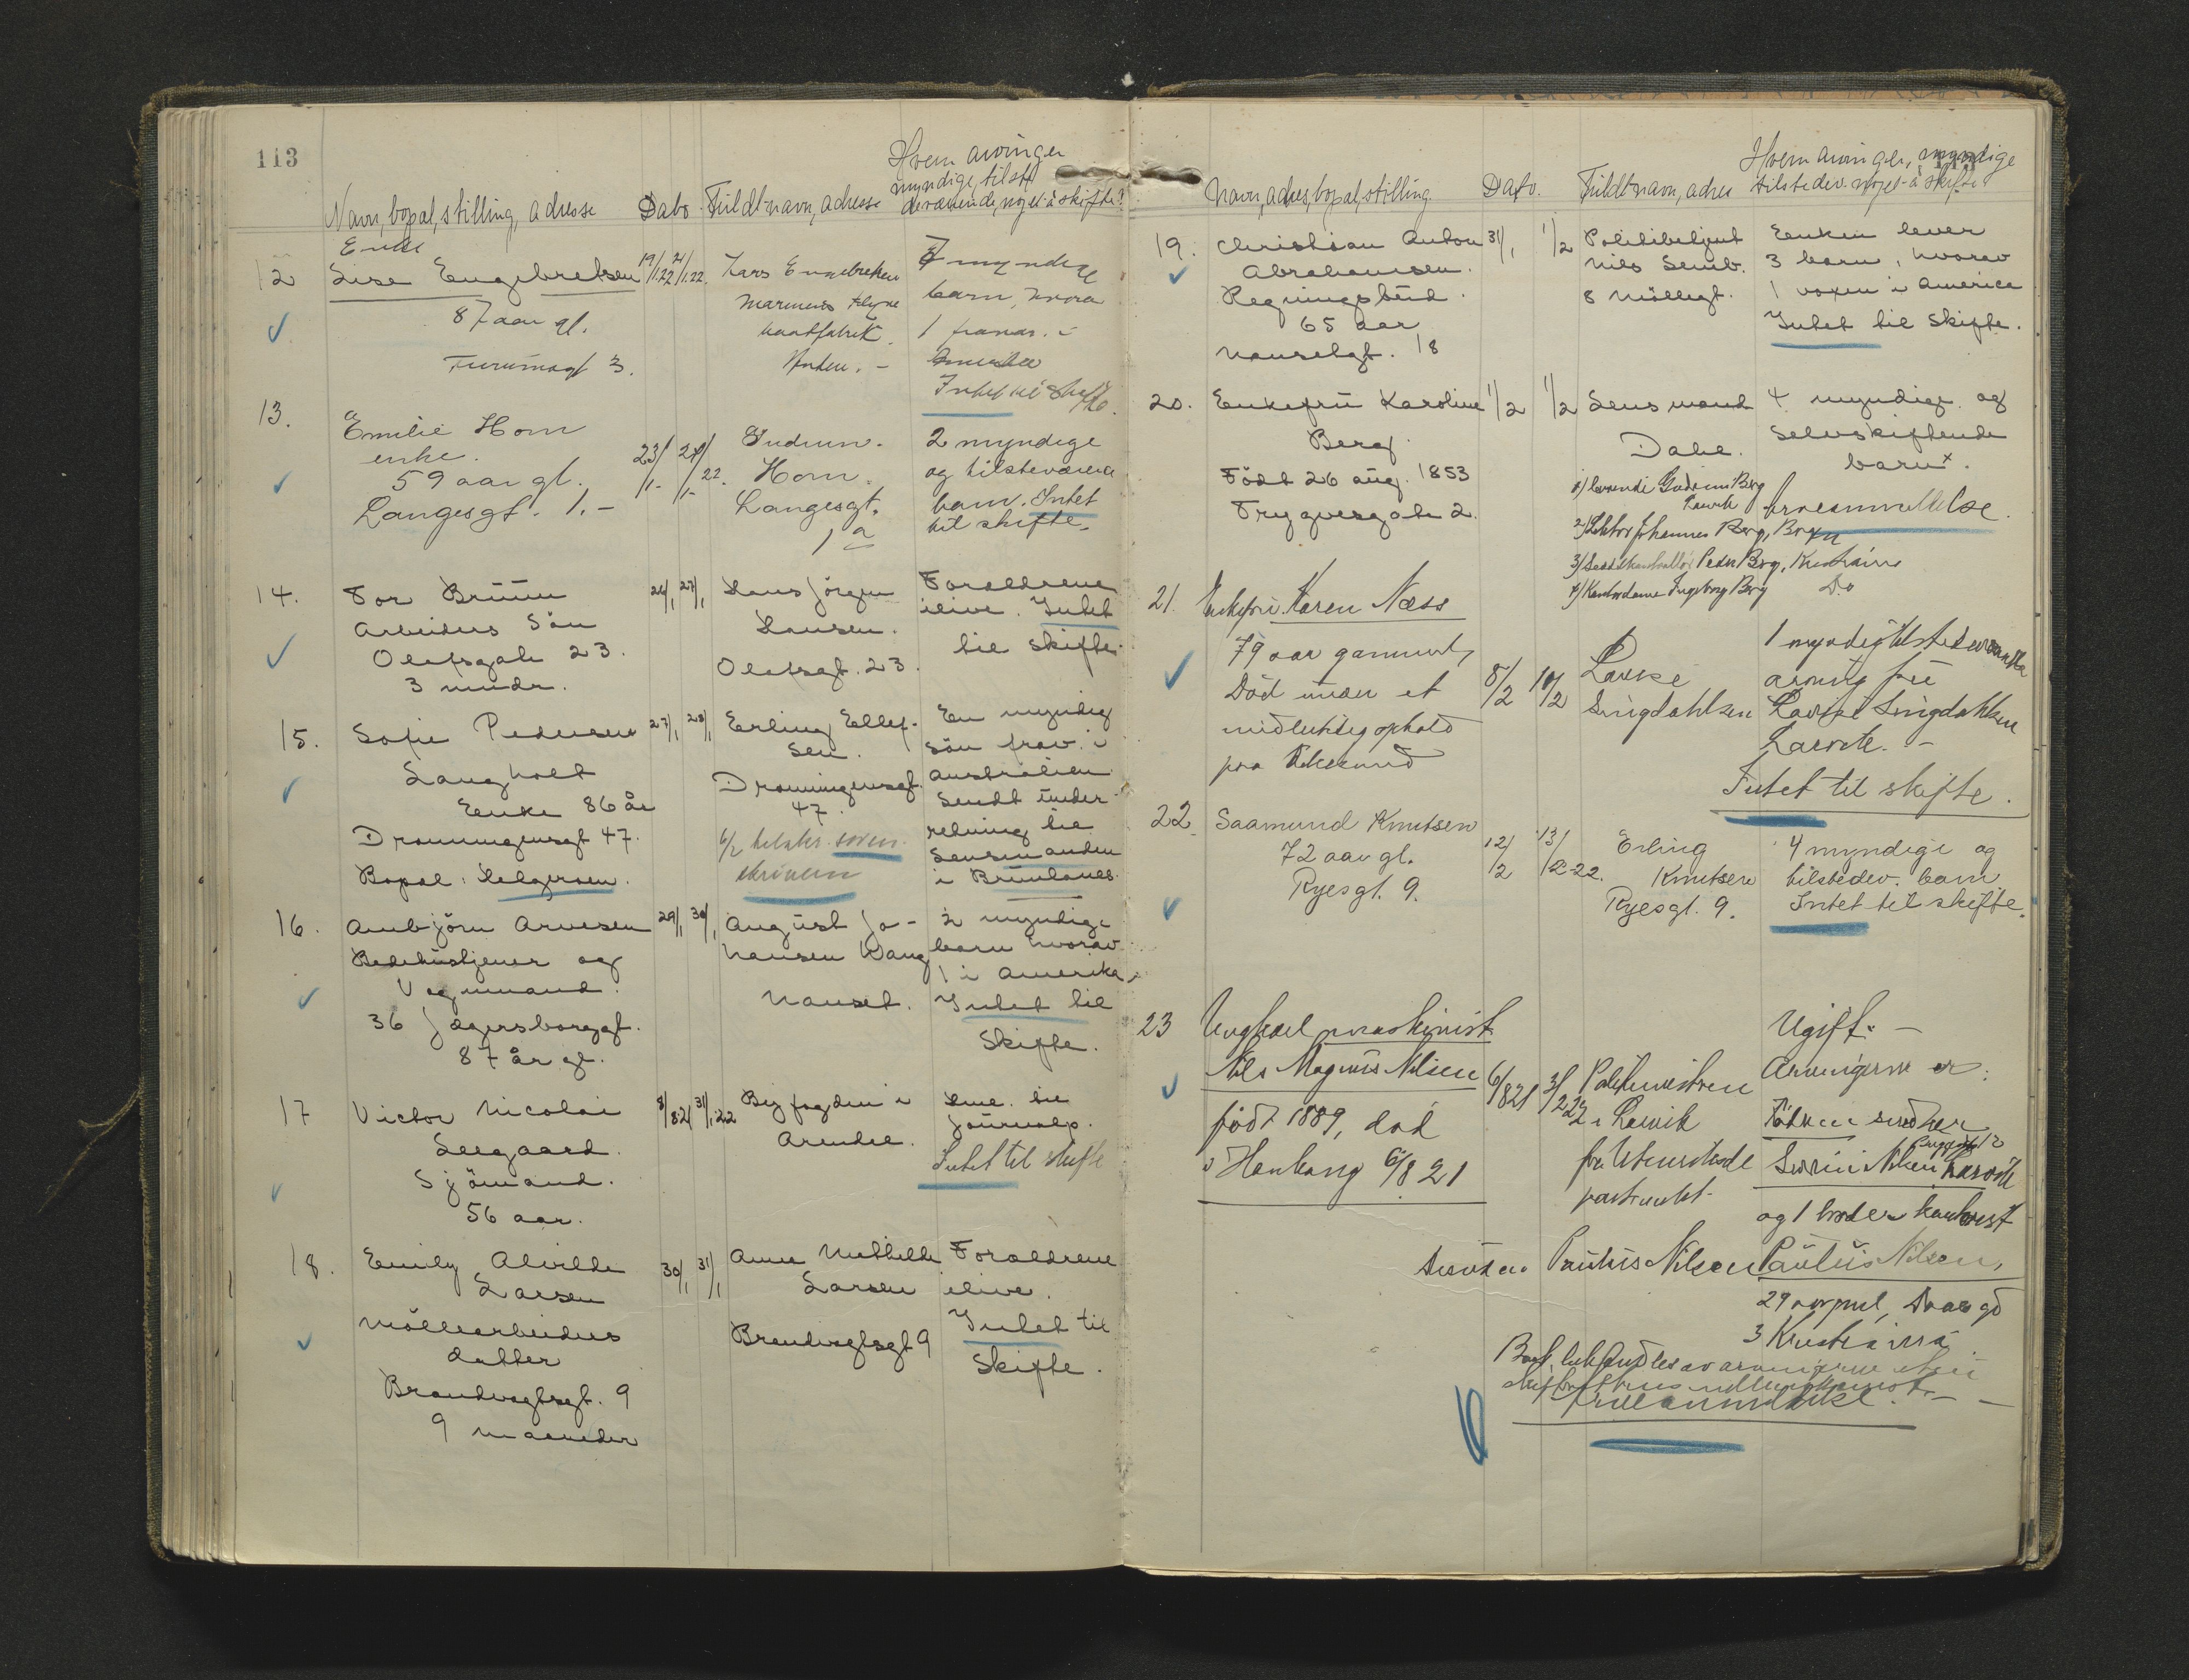 113
Navn, bopæl, stilling, adresse
Dato
Fuldt navn, adresse
Hvem arvinger
myndige, tilste
deværende, noget å skifte?
12
Enke
Lise Engebretsen
87 aar gl.
3.
19/1.22
21/1.22.
Lars Engebretsen
7 myndige
barn, hvorav
1 fravær. i
Amerika
Intet til skifte.
13.
Emilie Horn
enke.
59 aar gl.
Langesgt. 1. -
23/1-
24/1-22.
Gudrun
Horn.
Langesgt.
1 a
2 myndige
og tilsteværende
barn. Intet
til skifte.
14.
Tor Bruun
Arbeiders Sön
Olafsgate 23.
3 mndr.
26/1
27/1
Hans Jörgen
Hansen.
Olafsgt. 23.
Forældrene
ilive. Intet
til skifte.
15.
Sofie Pedersen
Langholt
Enke 86 år
Dronningensgt 47.
Bopæl: Helgeroen.
27/1
28/1
Erling Ellef-
sen.
Dronningensgt.
47.
6/2 tilskr. soren-
skriveren
En myndig
Sön frav. i
Australien.
Sendt under-
retning til
Lensmanden
i Brunlanes.
16.
Arnbjörn Arvesen
Bedehustjener og
Vognmand.
36 Jegersborggt.
87 år gl.
29/1
30/1
August Jo-
hansen Wang
Nanset.
2 myndige
barn hvorav
1 i Amerika.
Intet til
Skifte.
17
Victor Nicolai
Leegaard.
Sjömand.
56 aar.
8/8 21
31/1.22
Byfogden i
Arendal.
Hen. til
Journalp.
Intet til skifte
18.
Emily Alvilde
Larsen
Möllearbeiders
datter
Brandvagtsgt. 9
9 maaneder
30/1
31/1
Anne Mathilde
Larsen
Brandvagtsgt 9
Forældrene
ilive.
Intet til
Skifte.
Navn, adres, bopæl, stilling
Dato.
Fuldt navn, adres
Hvem arvinger, myndige
tilstedev. noget å skifte?
19.
Christian Anton
Abrahamsen.
Regningsbud.
65 aar
Nansetgt. 18
31/1
1/2
Politibetjent
Nils Semb.
8 Möllegt.
Enken lever
3 barn, hvorav
1 voxen i America
Intet til Skifte.
20.
Enkefru Karoline
Berg.
Födt 26 aug. 1853
Trygvesgate 2.
1/2
1/2
Lensmand
Dahl.
4 myndige og
Selvskiftende
barn x.
1) Gudrun Berg
Larvik
2) Lektor Johannes Berg, Bergen
3) Peder Berg, Kristiania
4) Kontordame Ingeborg Berg Do
Proclamutstedelse.
21.
Enkefru Karen Næss
79 aar gammel,
Död under et
midlertidig ophold
paa
8/2
10/2
Lovise
Lingdahlsen
1 myndig tilstedeværende
arving fru
Lovise Lingdahlsen
Larvik. -
Intet til skifte.
22.
Saamund Knutsen
72 aar gl.
Ryesgt. 9.
12/2
13/2-22.
Erling
Knutsen
Ryesgt. 9.
4 myndige og
tilstedev. barn
Intet til skifte.
23
Ungkarl maskinist
Nils Magnus Nilsen
født 1889, død
i Hankang 6/8 21
6/8 21
3/2 22
Politimesteren
i Larvik
fra Utenriksde
partementet.
Ugift. -
Arvingerne er:
Larvik
og 1 broder kontorist
Paulus Nilsen
Paulus Nilsen,
29 aar gml,
3 Kristiania